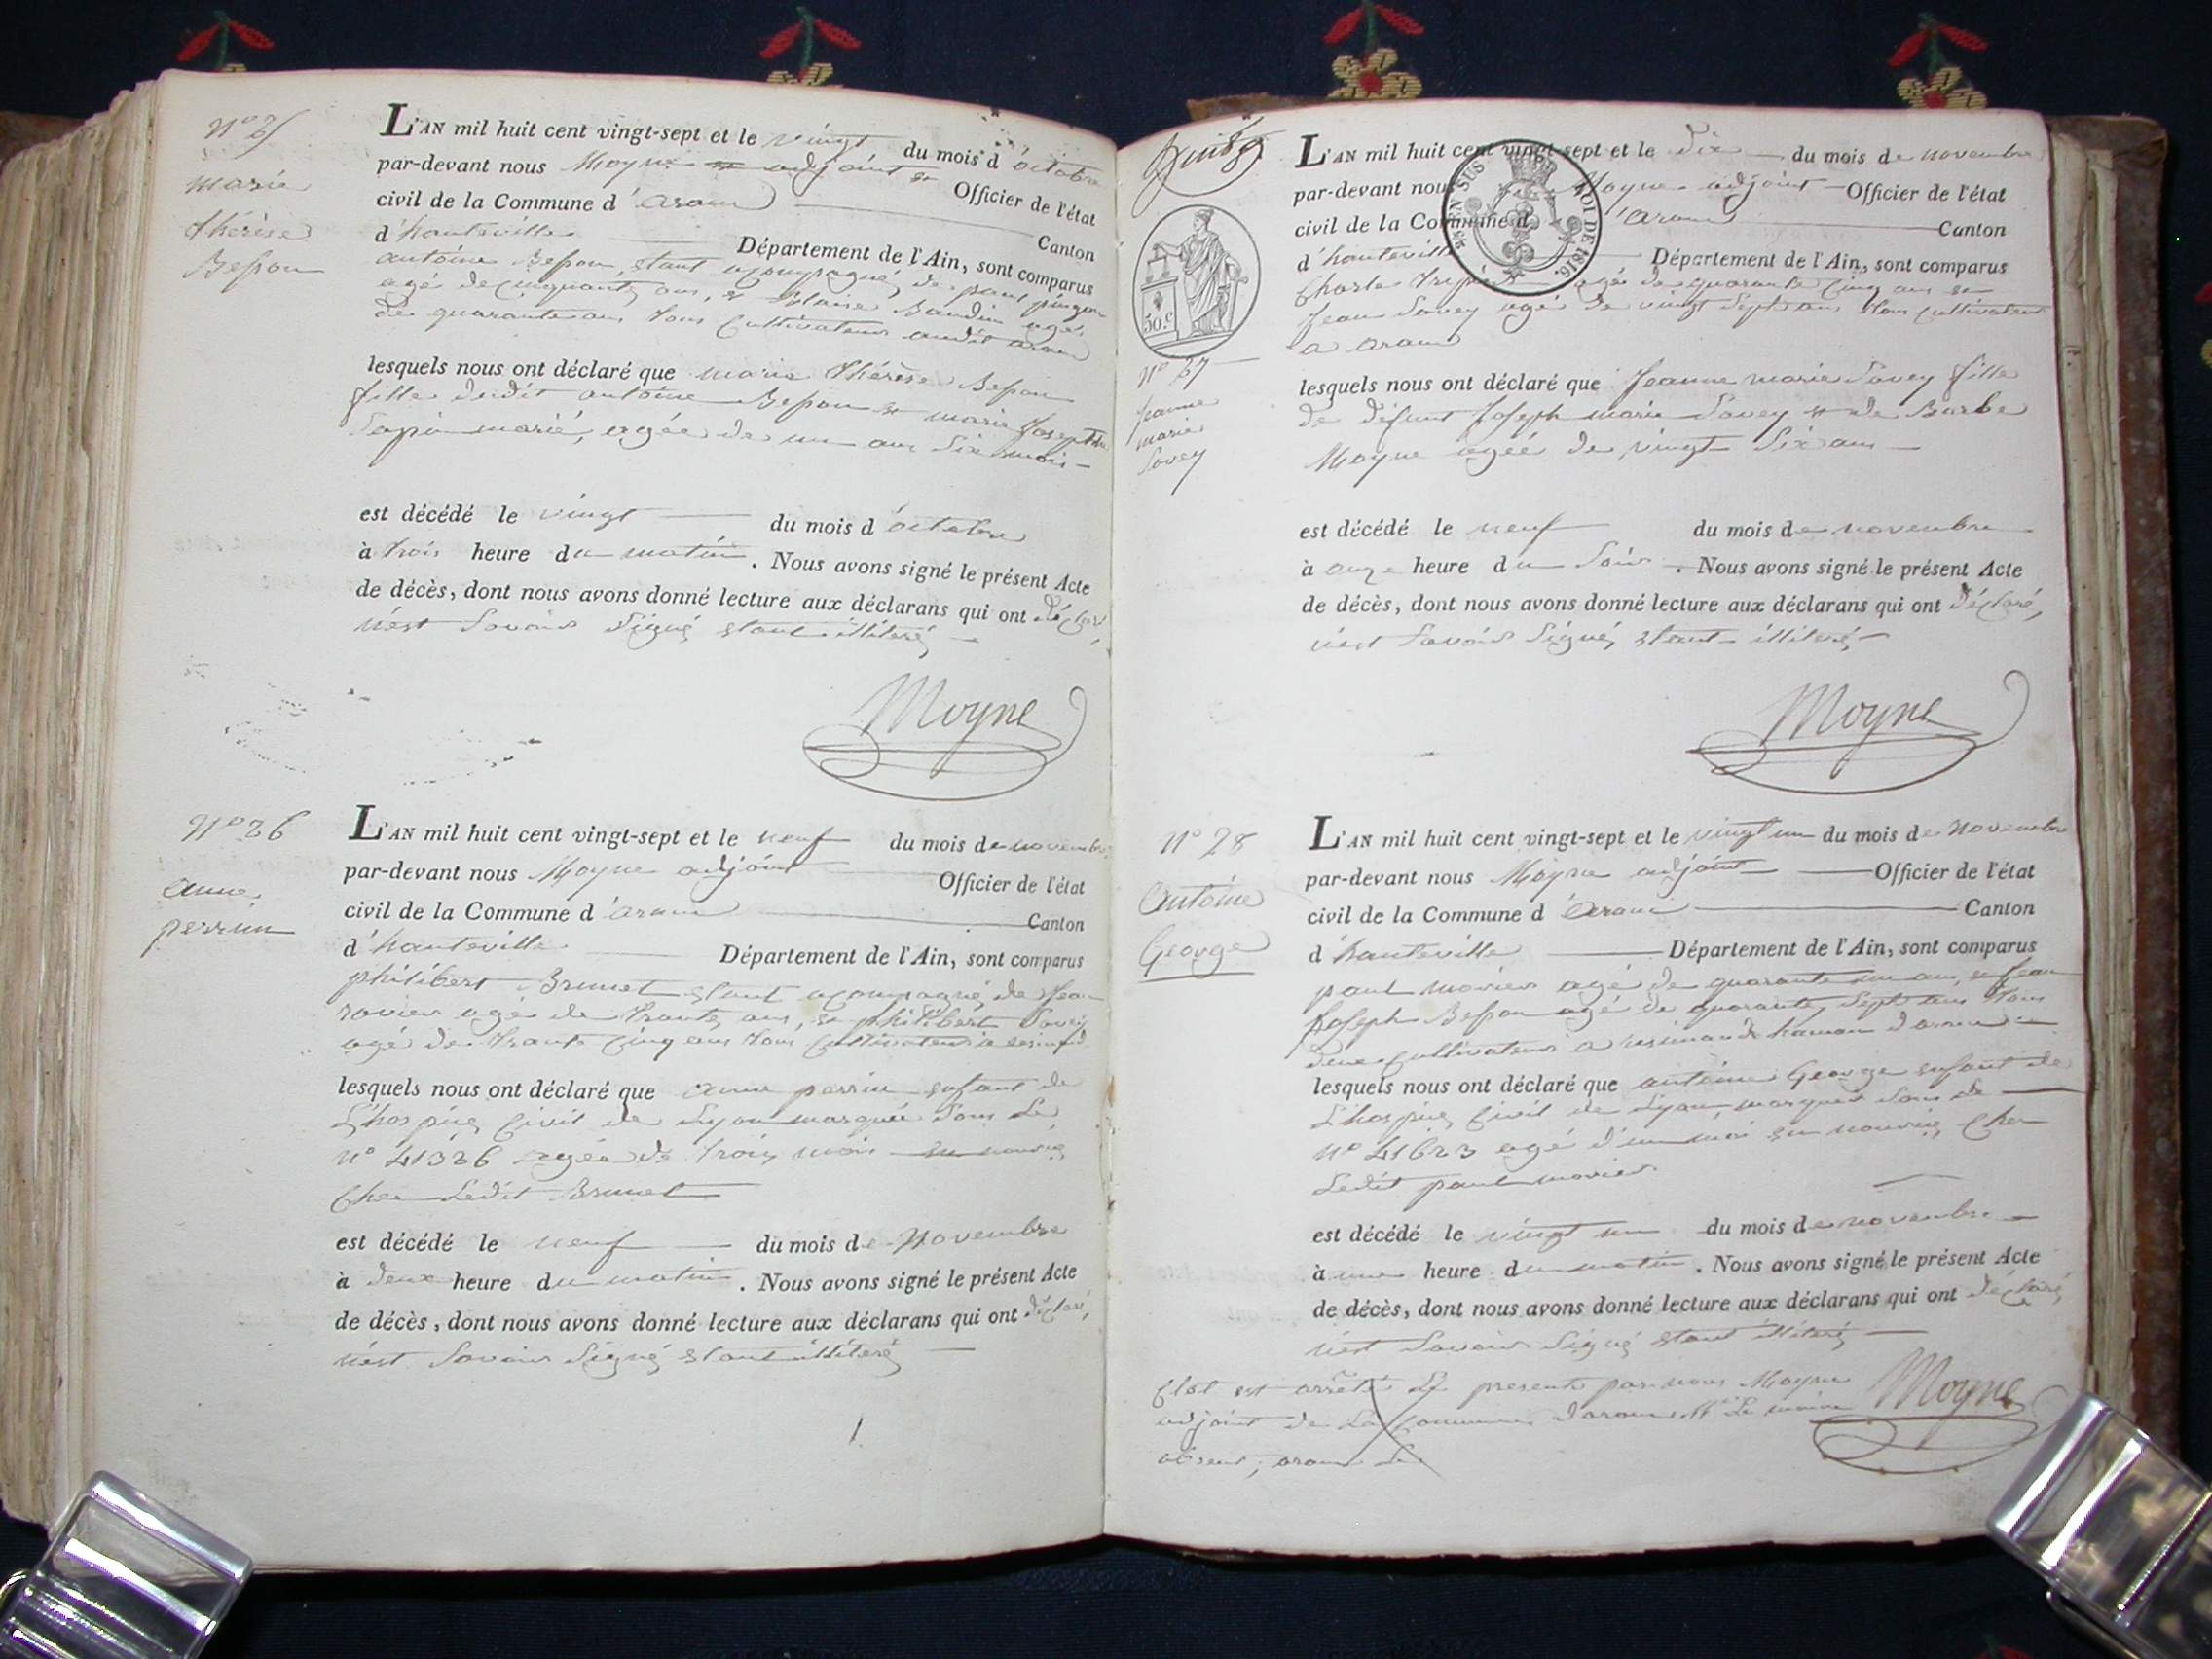 N° 25
marie
thérèse
Besson
L'AN mil huit cent vingt-sept et le vingt du mois d'octobre
par-devant nous Moyne adjoint Officier de l'état
civil de la Commune d'aranc Canton
d'hauteville Département de l'Ain, sont comparus
antoine Besson, etant acompagné de paul pingon
agé de cinquante ans, et Blaise Baudin agé
de quarante ans tous cultivateurs audit aranc
lesquels nous ont déclaré que marie thérèse Besson
fille dudit antoine Besson et marie Josephte
Sapin marié, agée de un ans Six mois
est décédé le vingt du mois d'octobre
à trois heure du matin. Nous avons signé le présent Acte
de décès, dont nous avons donné lecture aux déclarans qui ont déclaré
n'est Savoir Signé etant illiteré
Moyne
N° 26
anne
perrin
L'AN mil huit cent vingt-sept et le neuf du mois de novembre
par-devant nous Moyne adjoint Officier de l'état
civil de la Commune d'aranc Canton
d'hauteville Département de l'Ain, sont comparus
philibert Brunet etant acompagné de Jean
ravier agé de trante ans, et philibert Savey
agé de trante cinq ans tous cultivateurs a
lesquels nous ont déclaré que anne perrin enfant de
L'hospice Civil de Lyon marquée Sous Le
n° 41326 agée de trois mois en nourice
Chez Ledit Brunet
est décédé le neuf du mois de Novembre
à deux heure du matin. Nous avons signé le présent Acte
de décès, dont nous avons donné lecture aux déclarans qui ont déclaré,
n'est Savoir Signé etant illiteré
50.c
EN SUS
LOI DE 1816.
N° 27
Jeanne
marie
Savey
L'AN mil huit cent vingt-sept et le dix du mois de novembre
par-devant nous Moyne adjoint Officier de l'état
civil de la Commune d'aranc Canton
d'hauteville Département de l'Ain, sont comparus
Charle agé de quarante cinq ans et
Jean Savey agé de vingt Sept ans tous cultivateurs
a aranc
lesquels nous ont déclaré que Jeanne marie Savey fille
de défunt Joseph marie Savey et de Barbe
Moyne agée de vingt Six ans
est décédé le neuf du mois de novembre
à onze heure du Soir. Nous avons signé le présent Acte
de décès, dont nous avons donné lecture aux déclarans qui ont déclaré,
n'est Savoir Signé, etant illiteré
Moyne
N° 28
Antoine
George
L'AN mil huit cent vingt-sept et le vingt un du mois de Novembre
par-devant nous Moyne adjoint Officier de l'état
civil de la Commune d'aranc Canton
d'hauteville Département de l'Ain, sont comparus
paul movier agé de quarante un ans, et Jean
Joseph Besson agé de quarante Sept ans tous
deux cultivateurs a resinand hamau d'aranc
lesquels nous ont déclaré que antoine George enfant de
L'hospice Civil de Lyon, marquer Sous Le
n° 41623 agé d'un moi en nourice Chez
Ledit paul movier
est décédé le vingt un du mois de novembre
à une heure du matin. Nous avons signé le présent Acte
de décès, dont nous avons donné lecture aux déclarans qui ont déclaré
n'est Savoir Signé etant illiteré
Clot et arrêté Le present par nous Moyne
adjoint de La Commune d'aranc Mr Le maire
absent, aranc Le
Moyne